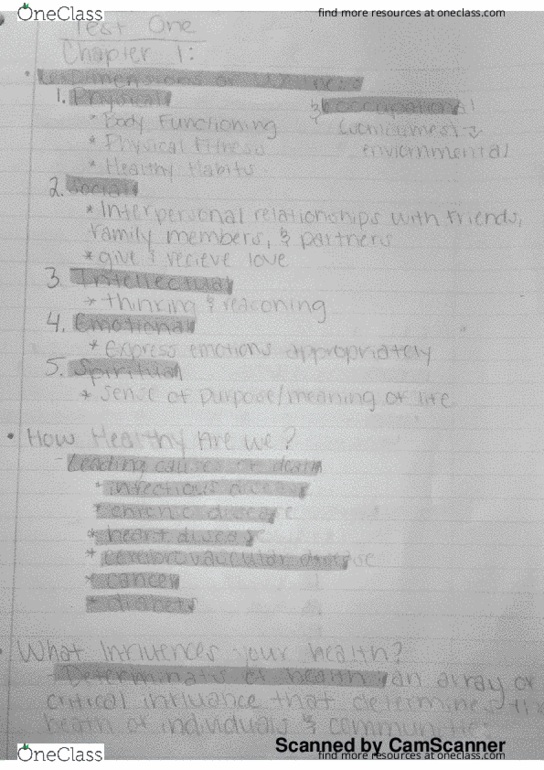 OneClass
find more resources at oneclass.com
Test One
Chapter 1:
• Dimensions of
1. Physical
* Body Functioning
* Physical Fitness
* Healthy Habits
occupational
environmental
2. Social
* Interpersonal relationships with friends,
family members, & partners
* give & recieve love
3. Intellectual
* thinking & reasoning
4. Emotional
* Express emotions appropriately
5. Spiritual
* sense of purpose/meaning of life
• How Healthy Are we?
- Leading causes of death
* infectious disease
* chronic disease
* heart disease
* cerebrovascular disease
* cancer
* diabets
• What Influences your health?
- of health an array of
critical influance that determines the
heath of individuals & communities
Scanned by CamScanner
OneClass
find more resources at oneclass.com